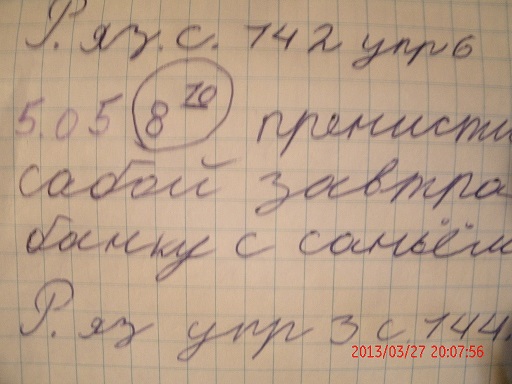 Р. яз. с. 142 упр 6
5.05 8 20 пренисти
сабой завтра
банку с саньём
Р. яз упр 3 с 144.
2013/03/27 20:07:56